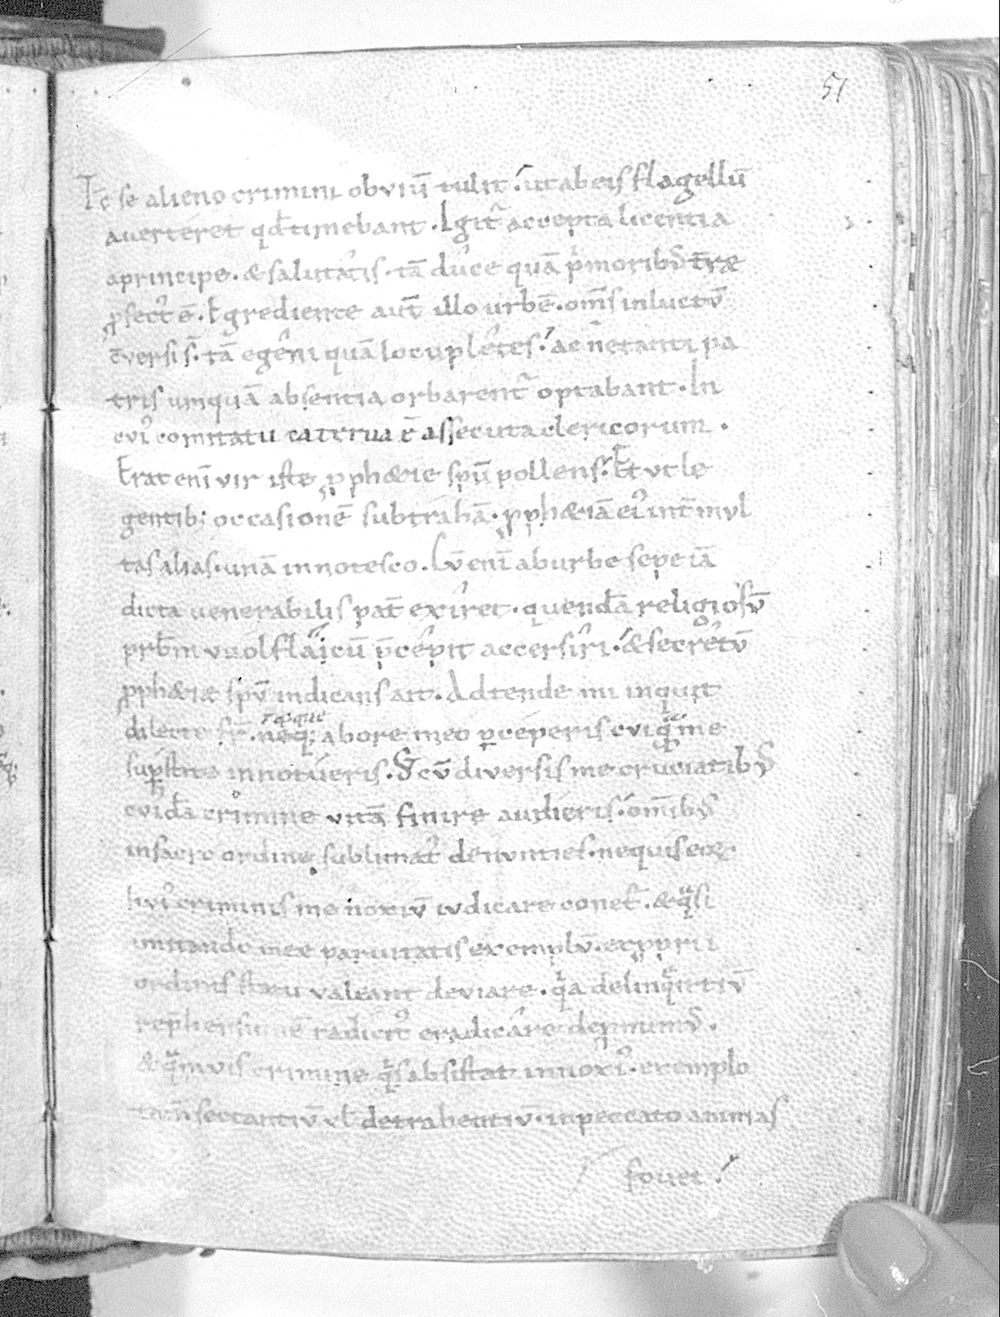 51
Tc̄ se alieno crimini obviū tulit. ut ab eis flagellū
averteret qđ timebant. Igit̄ accepta licentia
a principe. & salutatis. tā duce quā p̄moribꝰ t̄ræ
ꝓfect᾿ ē. Egrediente aut̄ illo urbē. oms̄ in luctū
v̄ersi s̄. tā egeni quā locupletes. ac ne tanti pa
tris umquā absentia orbarent̄ optabant. In
cvi᾿ comitatu caterua ē assecuta clericorum.
Erat eni vir iste ꝓphætie spū pollens. Et vt le
gentib; occasionē subtrahā. ꝓphætiā ei᾿ int̄ mul
tas alias. unā innotesco. Cū eni ab urbe sepe iā
dicta venerabilis pat̄ exiret. quendā religiosū
prb̄m vuolflaicū p̄cepit accersiri. & secretū
ꝓphætiæ spū indicans ait. Adtende mi inquit
dilecte fr̄. neq; ab ore meo ꝑceperis cviquā me
neque
supstite innotueris. S; cū diversis me cruciatibꝰ
cvidā crimine vitā finire audieris. omibꝰ
in sacro ordine sublimat᾿ denunties. ne quis eoꝝ
huj᾿ criminis me noxiū iudicare conet̄. & q̄si
imitando meæ paruitatis exemplū. ex ꝓprii
ordinis statu valeant deviare. q̄a delinq̄ntiū
&  q̄mvis crimine q̄s absistat innoxi᾿. exemplo
tam̄ sectantiū vł detrahentiū. in peccato animas
fouet.